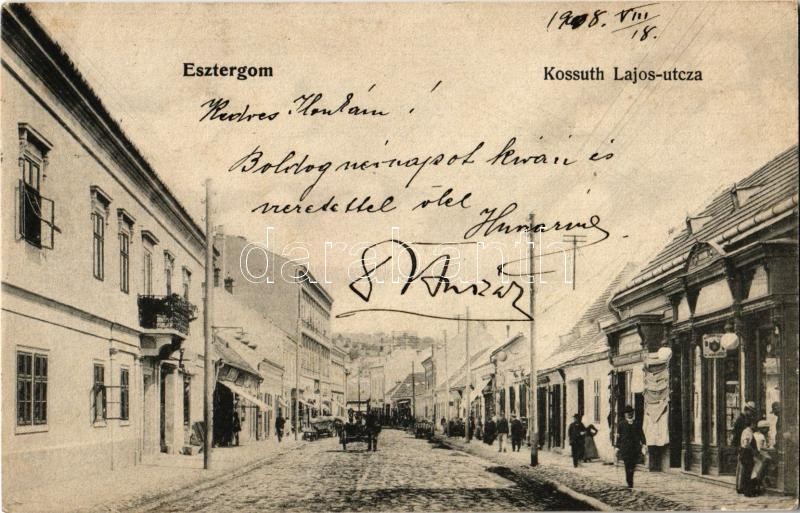 1908. VIII
18.
Esztergom
Kossuth Lajos-utcza
Kedves Ilonkám!
Boldog névnapot kíván és
szeretettel ölel
darabanth